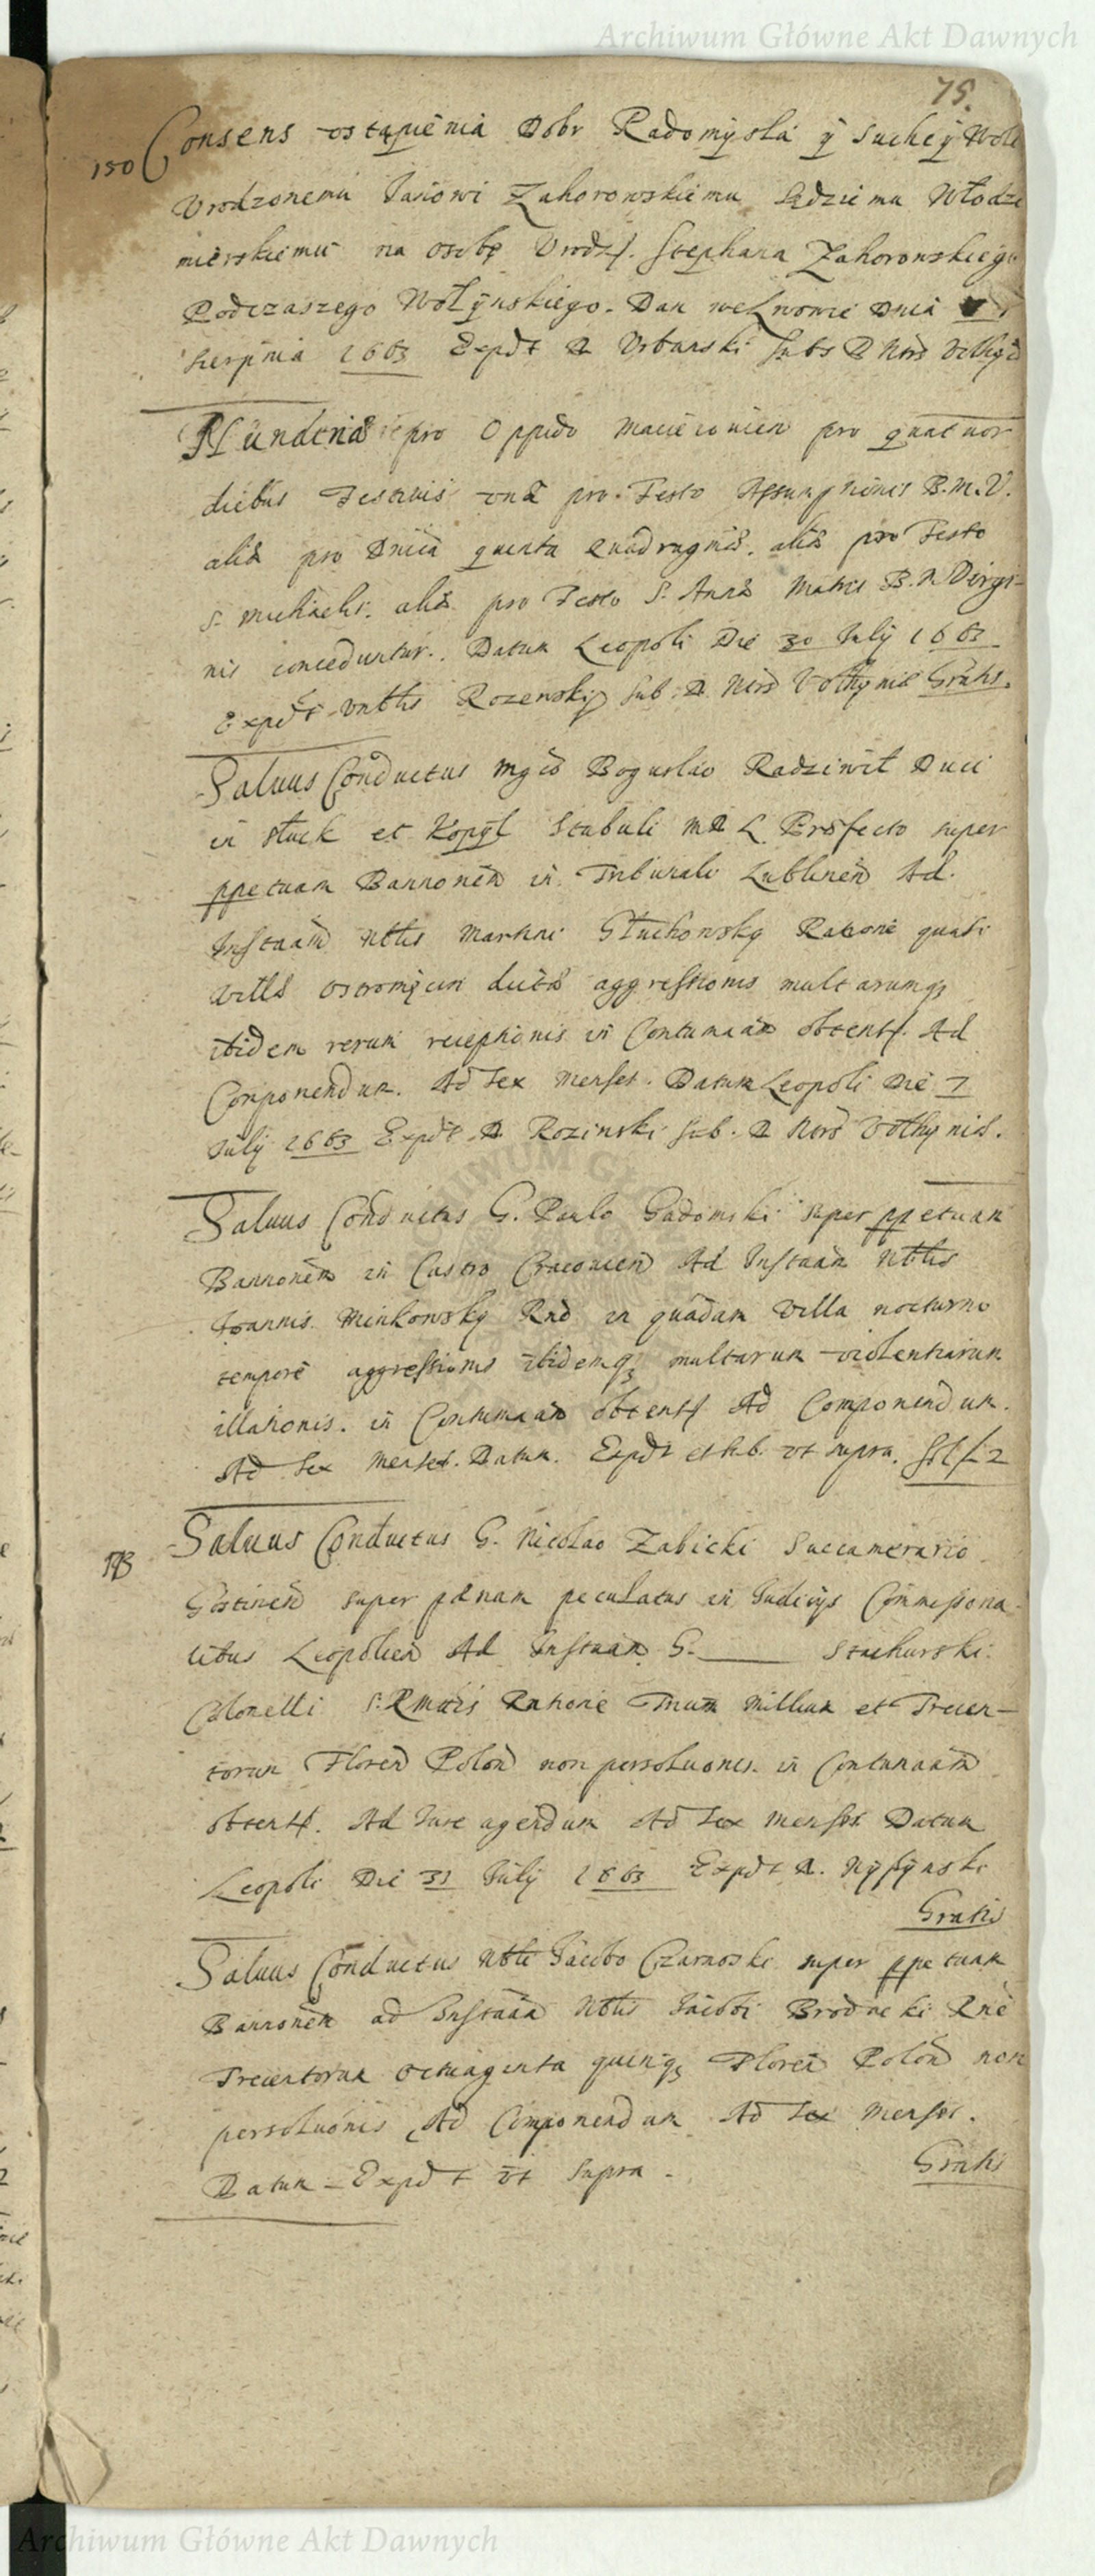 Archiwum Główne Akt Dawnych
75.
150 Consens ostąpienia Dobr Radomysla ÿ Suchey Woli
Vrodzonemu Janowi Zahorowskiemu Sędziemu Włodzi
mierskiemu na osobę Vrodz. Stephana Zahorowskiego
Podczaszego Wołÿnskiego. Dan we Lwowie Dnia
Sierpnia 1663 Expdt D Vrbanski subs D Nris
Nundinae pro Oppido Macieiovien pro quatuor
diebus Festivis una pro Festo Assumptionis B.M.V.
alia pro Dnica quinta Quadragmae. alia pro Festo
S. Michaelis. alia pro Festo S. Annae Matris B.M Virgi-
nis conceduntur. Datum Leopoli Die 30 July 1663
Expdt Rozenski Sub. D. Nris Volhyniae Gratis.
Salvus Conductus Mgco Boguslao Radziwił Duci
in Sluck et Kopÿl Stabuli M D L Praefecto super
ppetuam Bannonem in Tribunali Lublinen Ad
Instaam Nblis Martini Głuchowsky Ratione quasi
Villae ductae aggressionis multarumq3
ibidem rerum receptionis in Contumaam obtent. Ad
Componendum. Ad Sex Menses. Datum Leopoli Die 7
July 1663 Expdt D Rozinski Sub. D Nris Volhyniae.
Salvus Conductus G. Paulo Gadomski super ppetuam
Bannonem in Castro Cracovien Ad Instaam Nblis
Joannis Minkowsky Rne in quadam Villa nocturno
tempore aggressionis ibidemq3 multarum violentiarum
illationis. in Contumaam obtent Ad Componendum.
Ad Sex Menses. Datum. Expdt et sub. ut supra. 2
173 Salvus Conductus G. Nicolao Zabicki Succamerario
Gostinen super paenam peculatus in Judicijs Commissoria-
libus Leopolien Ad Instaam G. ____ Stachurski
Colonelli S. R Mattis Ratione Trium Millium et Trecen-
torum Floren Polon non persoluonis. in Contumaam
obtent. Ad Jure agendum Ad Sex Menses Datum
Leopoli Die 31 July 1663 Expdt D.
Gratis
Salvus Conductus Nbli Jacobo Czarnoski super ppetuam
Bannonem ad Instaam Nblis Jacobi Brodnicki Rne
Trecentorum Octuaginta quinq3 Floren Polon non
persoluonis Ad Componendum Ad Sex Menses.
Datum - Expdt ut Supra - Gratis
Archiwum Główne Akt Dawnych